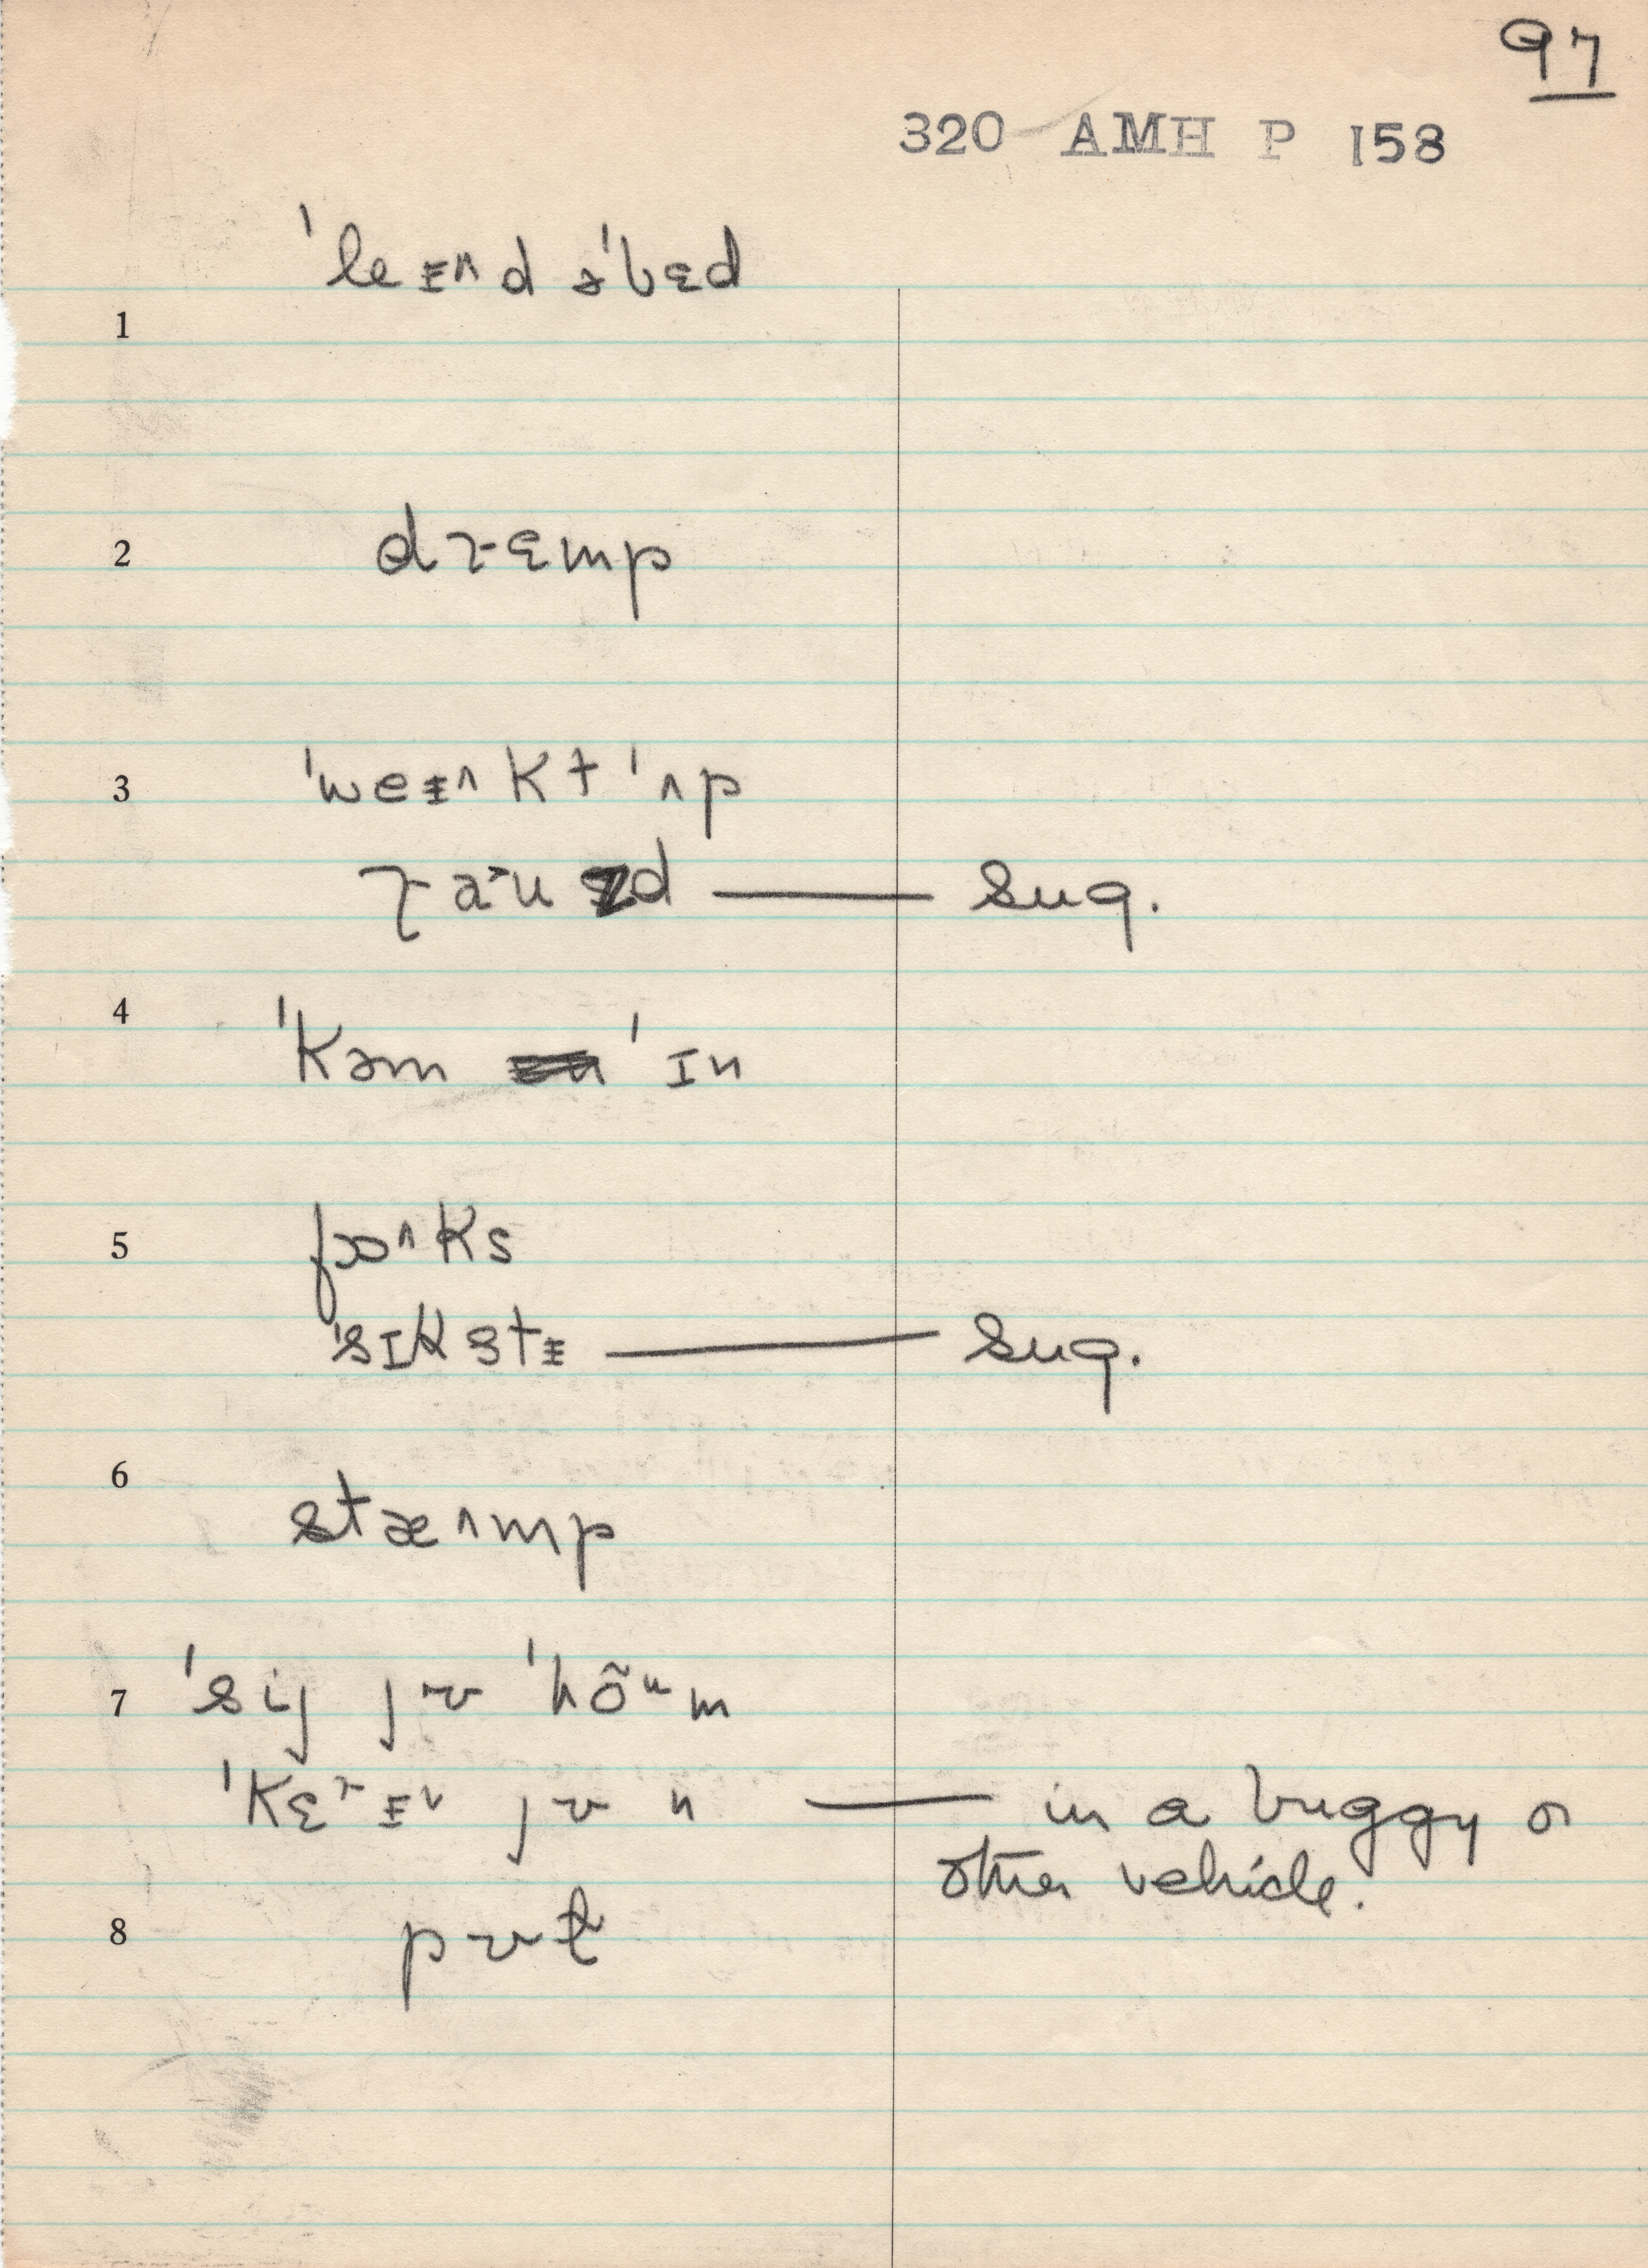 97
320 AMH P 158
ˈleɪ̵^nd əˈbɛd
1
2 drɛmp
3 ˈweɪ̵^kt ˈʌp
raˑuzd — sug.
4
ˈkəm ˈɪn
5 fɔ^ks
ˈsɪkstɪ̵ — sug.
6
stæ^mp
7 ˈsij jɚ ˈhõᵘm
ˈkɛrɪ̵ jɚ — in a buggy or
other vehicle.
8